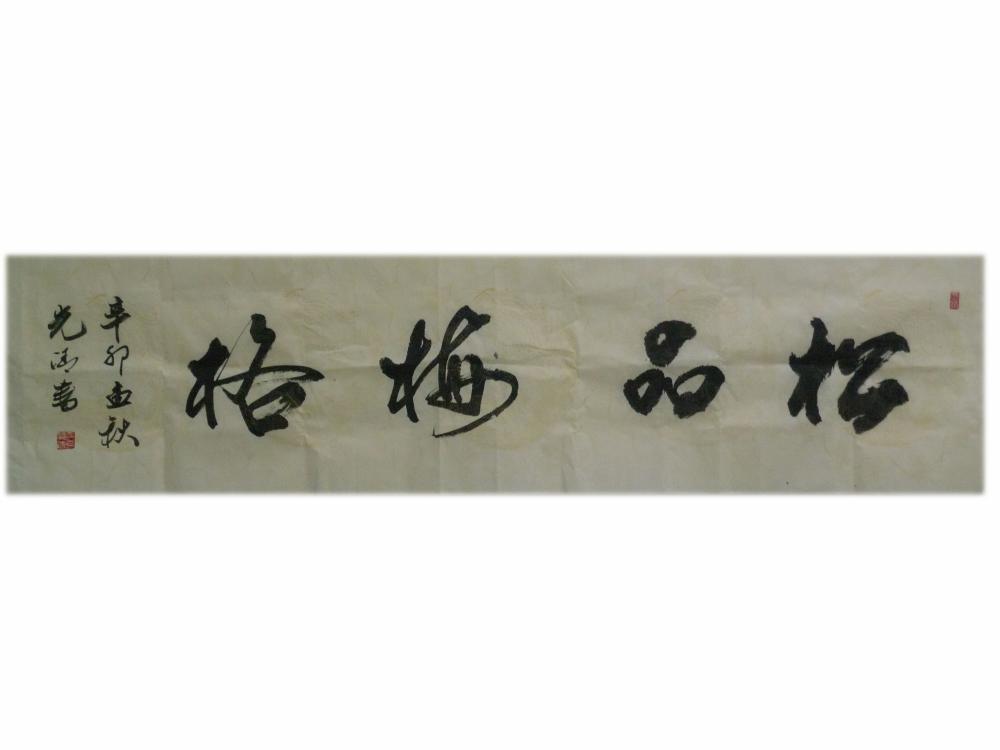 松品梅格
辛卯孟秋
光涵書